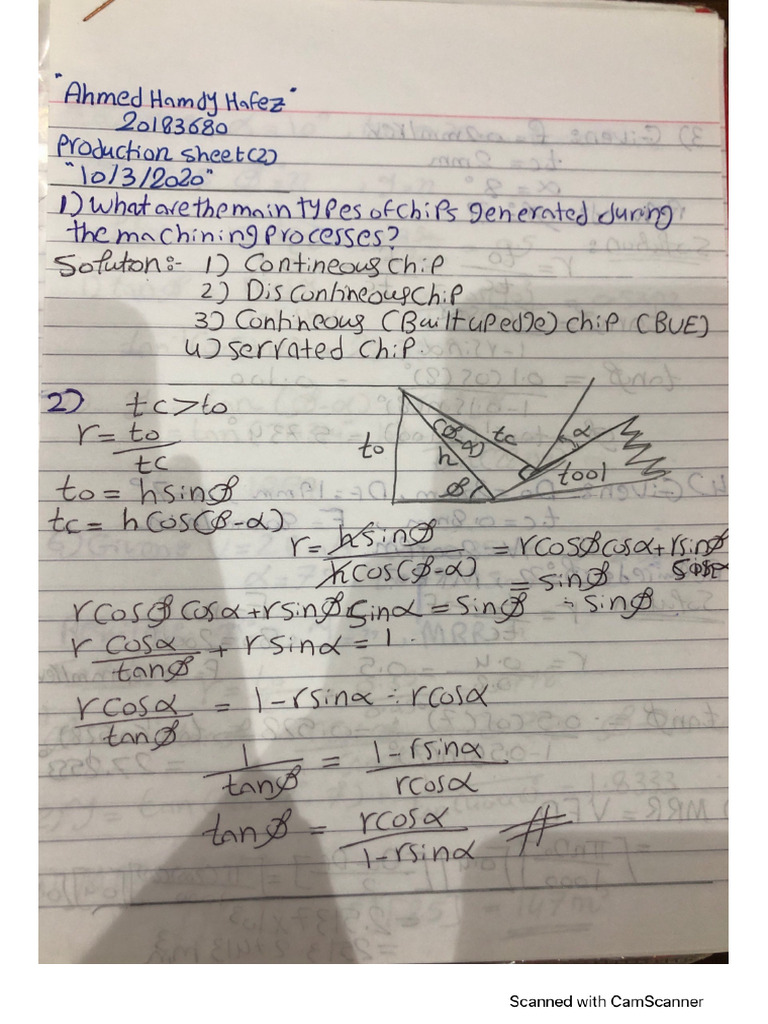 "Ahmed Hamdy Hafez"
20183680
Production sheet(2)
"10/3/2020"
1) What are the main types of chips generated during
the machining processes?
Soluton:- 1) Contineous chip
2) Discontineous chip
3) Contineous (Built up edge) chip (BUE)
4) serrated chip.
2) tc>to
r = to
tc
to = h sinø
tc = h cos(ø-α)
to
(ø-α)
h
tc
ø
α
tool
r = h sinø = r cosø cosα + r sinø sinα
h cos(ø-α) = sinø
r cosø cosα + r sinø sinα = sinø ÷ sinø
r cosα + r sinα = 1
tanø
r cosα = 1 - r sinα ÷ r cosα
tanø
1 = 1 - r sinα
tanø r cosα
tanø = r cosα #
1 - r sinα
Scanned with CamScanner